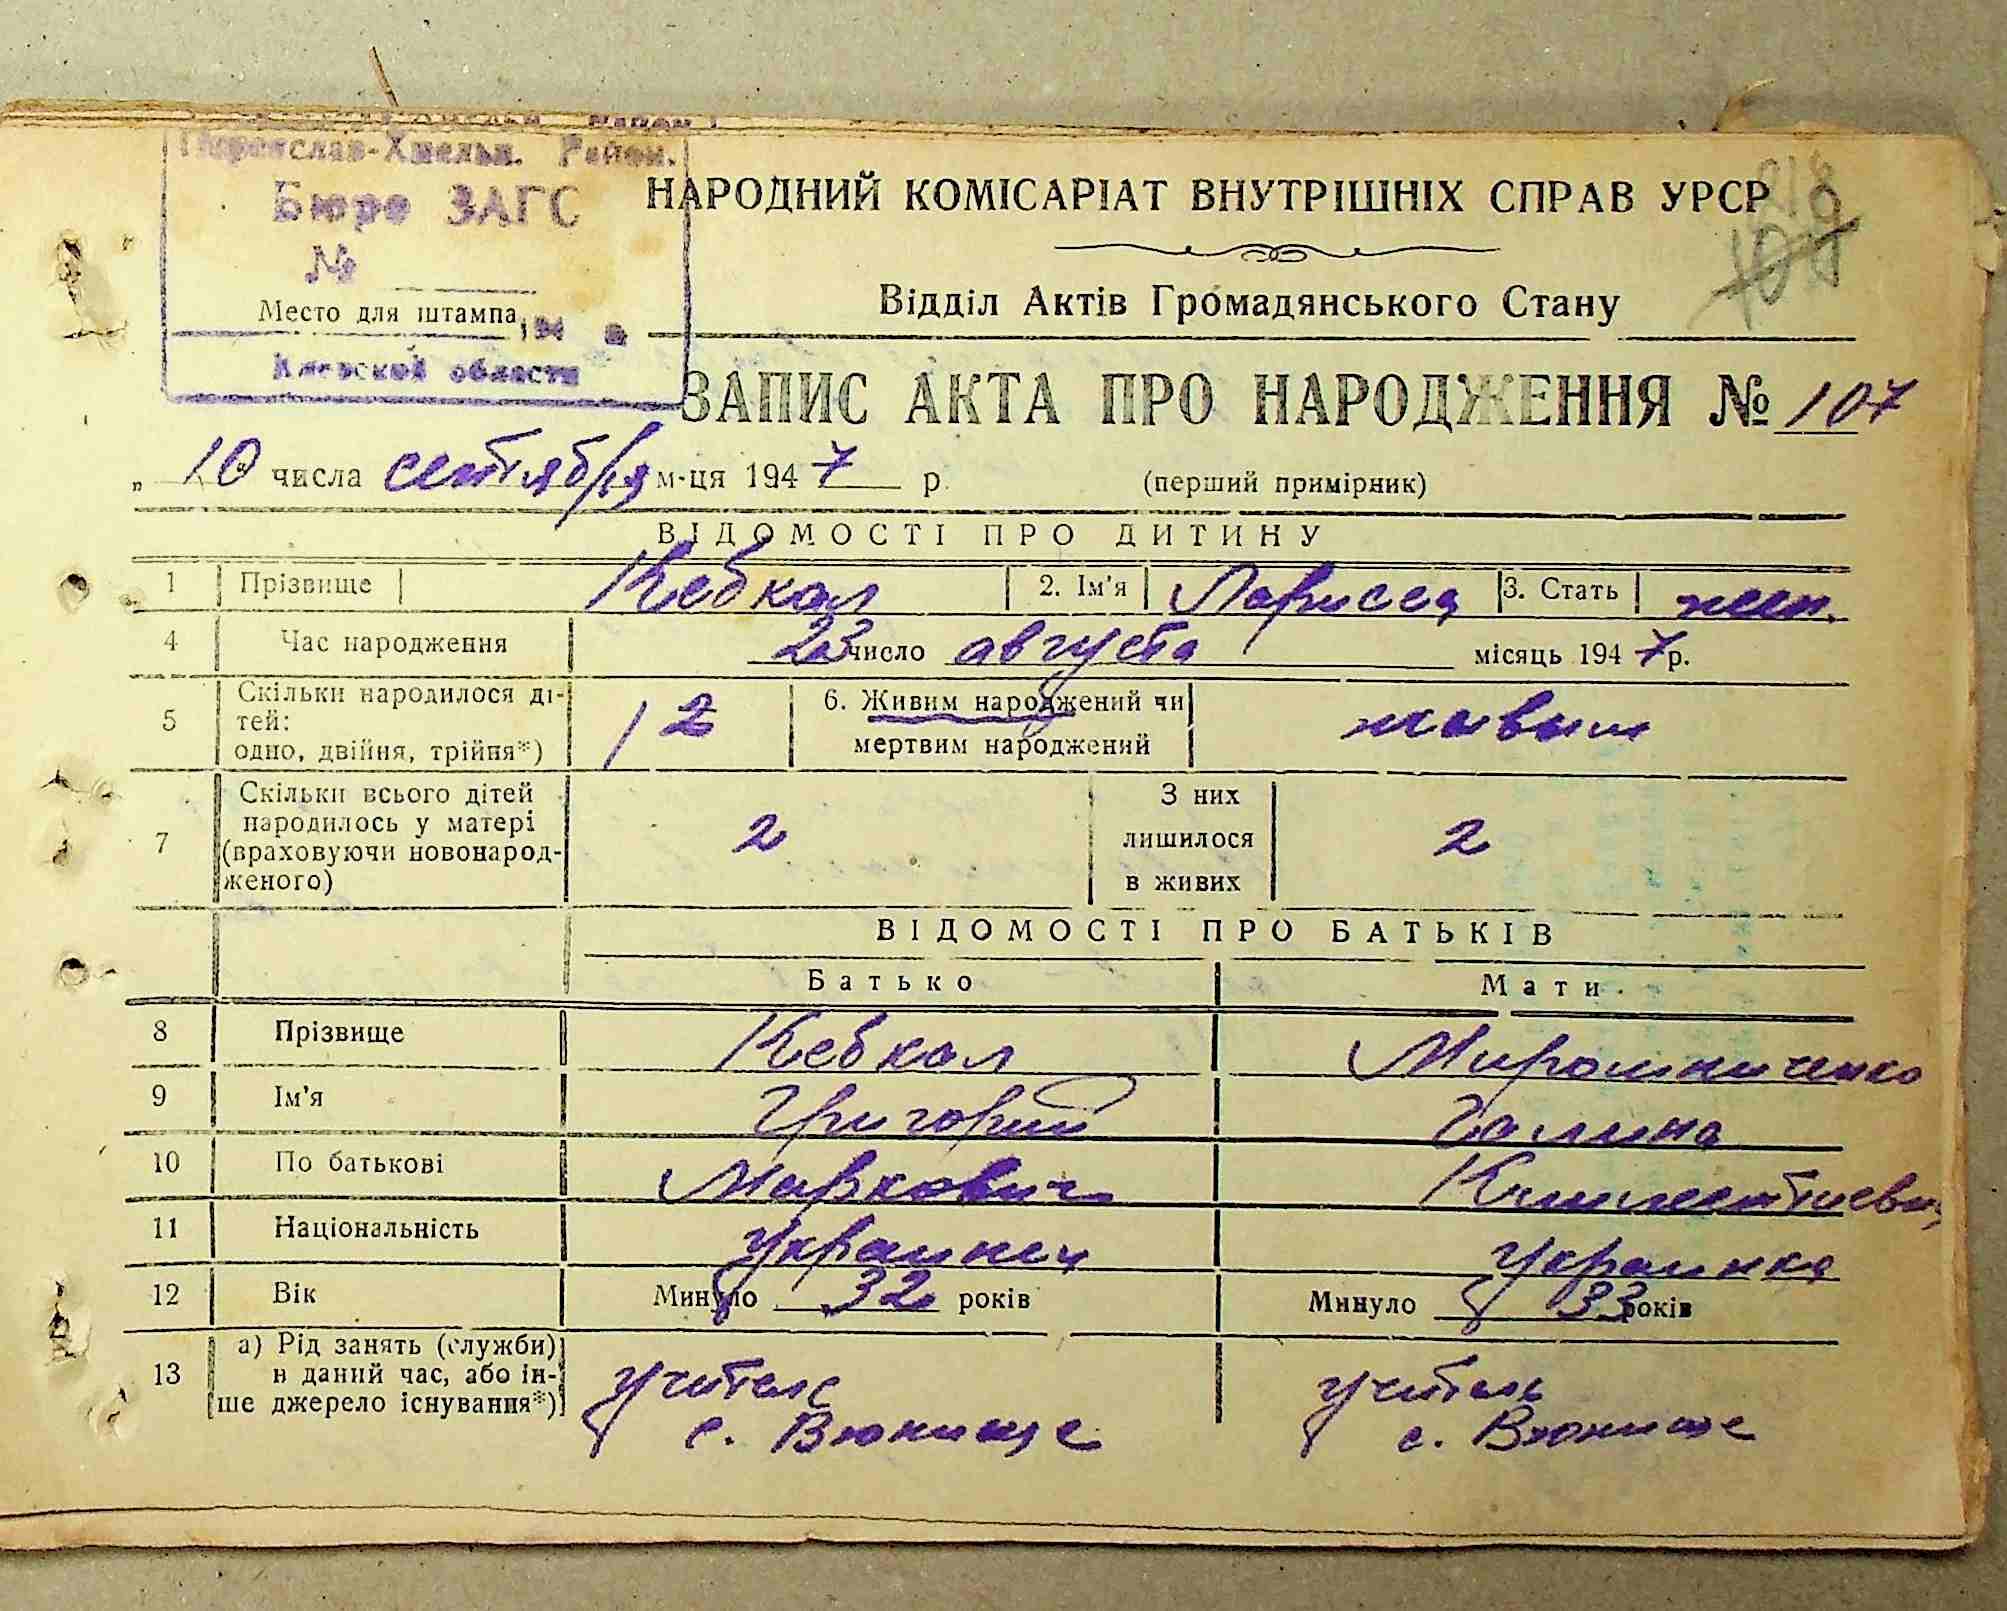 Переяслав-Хмельн. Район.
Бюро ЗАГС
№
Место для штампа
194 г
Киевской области
НАРОДНИЙ КОМІСАРІАТ ВНУТРІШНІХ СПРАВ УРСР
Відділ Актів Громадянського Стану
ЗАПИС АКТА ПРО НАРОДЖЕННЯ № 107
„ 10 числа сентября м-ця 1947 р. (перший примірник)
ВІДОМОСТІ ПРО ДИТИНУ
1 Прізвище Кебкал 2. Ім'я Лариса 3. Стать жен.
4 Час народження 23 число августа місяць 1947 р.
5 Скільки народилося ді-
тей:
одно, двійня, трійня*) 2 6. Живим народжений чи
мертвим народжений живым
7 Скільки всього дітей
народилось у матері
(враховуючи новонарод-
женого) 2 З них
лишилося
в живих 2
ВІДОМОСТІ ПРО БАТЬКІВ
Батько Мати
8 Прізвище Кебкал Мирошниченко
9 Ім'я Григорий Галина
10 По батькові Маркович
11 Національність украинец украинка
12 Вік Минуло 32 років Минуло 33 років
13 а) Рід занять (служби)
в даний час, або ін-
ше джерело існування*) учитель учитель
с. Вюнище с. Вюнище